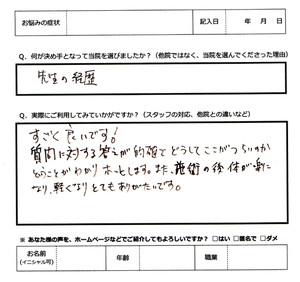 お悩みの症状
記入日 年 月 日
Q．何が決め手となって当院を選びましたか？（他院ではなく、当院を選んでくださった理由）
先生の経歴
Q．実際にご利用してみていかがですか？（スタッフの対応、他院との違いなど）
すごく良いです！
質問に対する答えが的確でどうしてここがつらいのか
ということがわかりホッとします。また、施術の後、体が楽に
なり、軽くなりとてもありがたいです。
※ あなた様の声を、ホームページなどでご紹介してもよろしいですか？ □はい □匿名で □ダメ
お名前
(イニシャル可)
年齢
職業